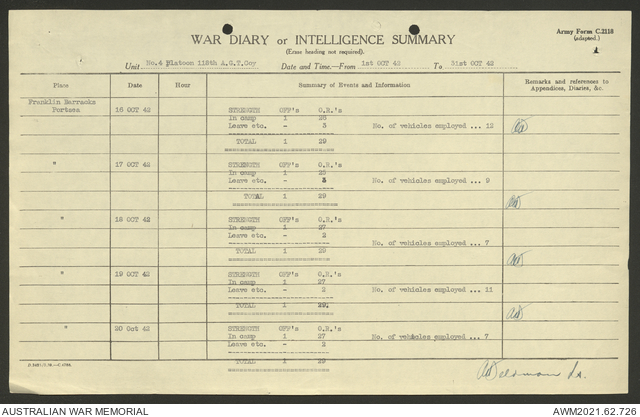 Army Form C.2118
(adapted.)
WAR DIARY or INTELLIGENCE SUMMARY
(Erase heading not required).
Unit No.4 Platoon 118th A.G.T.Coy Date and Time.—From 1st OCT 42 To 31st OCT 42
Place Date Hour Summary of Events and Information Remarks and references to Appendices, Diaries, &c.
Franklin Barracks
Portsea 16 OCT 42 STRENGTH OFF's O.R.'s
In camp 1 26
Leave etc. - 3 No. of vehicles employed ... 12
TOTAL 1 29
" 17 OCT 42 STRENGTH OFF's O.R.'s
In camp 1 25
Leave etc. - No. of vehicles employed ... 9
TOTAL 1 29
" 18 OCT 42 STRENGTH OFF's O.R.'s
In camp 1 27
Leave etc. - 2
No. of vehicles employed ... 7
TOTAL 1 29
" 19 OCT 42 STRENGTH OFF's O.R.'s
In camp 1 27
Leave etc. - 2 No. of vehicles employed ... 11
TOTAL 1 29
" 20 Oct 42 STRENGTH OFF's O.R.'s
In camp 1 27 No. of vehicles employed ... 7
Leave etc. - 2
TOTAL 1 29
AUSTRALIAN WAR MEMORIAL AWM2021.62.726